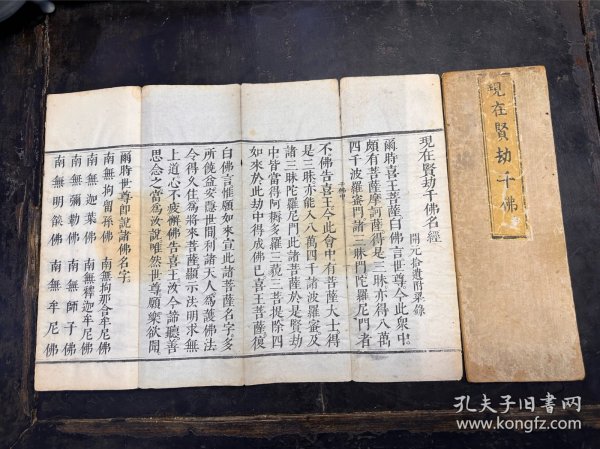 現在賢劫千佛名經
開元拾遺附梁錄
爾時喜王菩薩白佛言世尊今此衆中
頗有菩薩摩訶薩得是三昧亦得八萬
四千波羅蜜門諸三昧門陀羅尼門者
不佛告喜王今此會中有菩薩大士得
是三昧亦能入八萬四千諸波羅蜜及
諸三昧陀羅尼門此諸菩薩於是賢劫
中皆當得阿耨多羅三藐三菩提除四
如來於此劫中得成佛已喜王菩薩復
白佛言惟願如來宣此諸菩薩名字多
所饒益安隱世間利諸天人爲護佛法
令得久住爲將來菩薩顯示法明求無
上道心不疲懈佛告喜王汝今諦聽善
思念之當爲汝說唯然世尊願樂欲聞
爾時世尊即說諸佛名字
南無拘留孫佛 南無拘那含牟尼佛
南無迦葉佛 南無釋迦牟尼佛
南無彌勒佛 南無師子佛
南無明燄佛 南無牟尼佛
現在賢劫千佛
孔夫子旧书网
www.kongfz.com